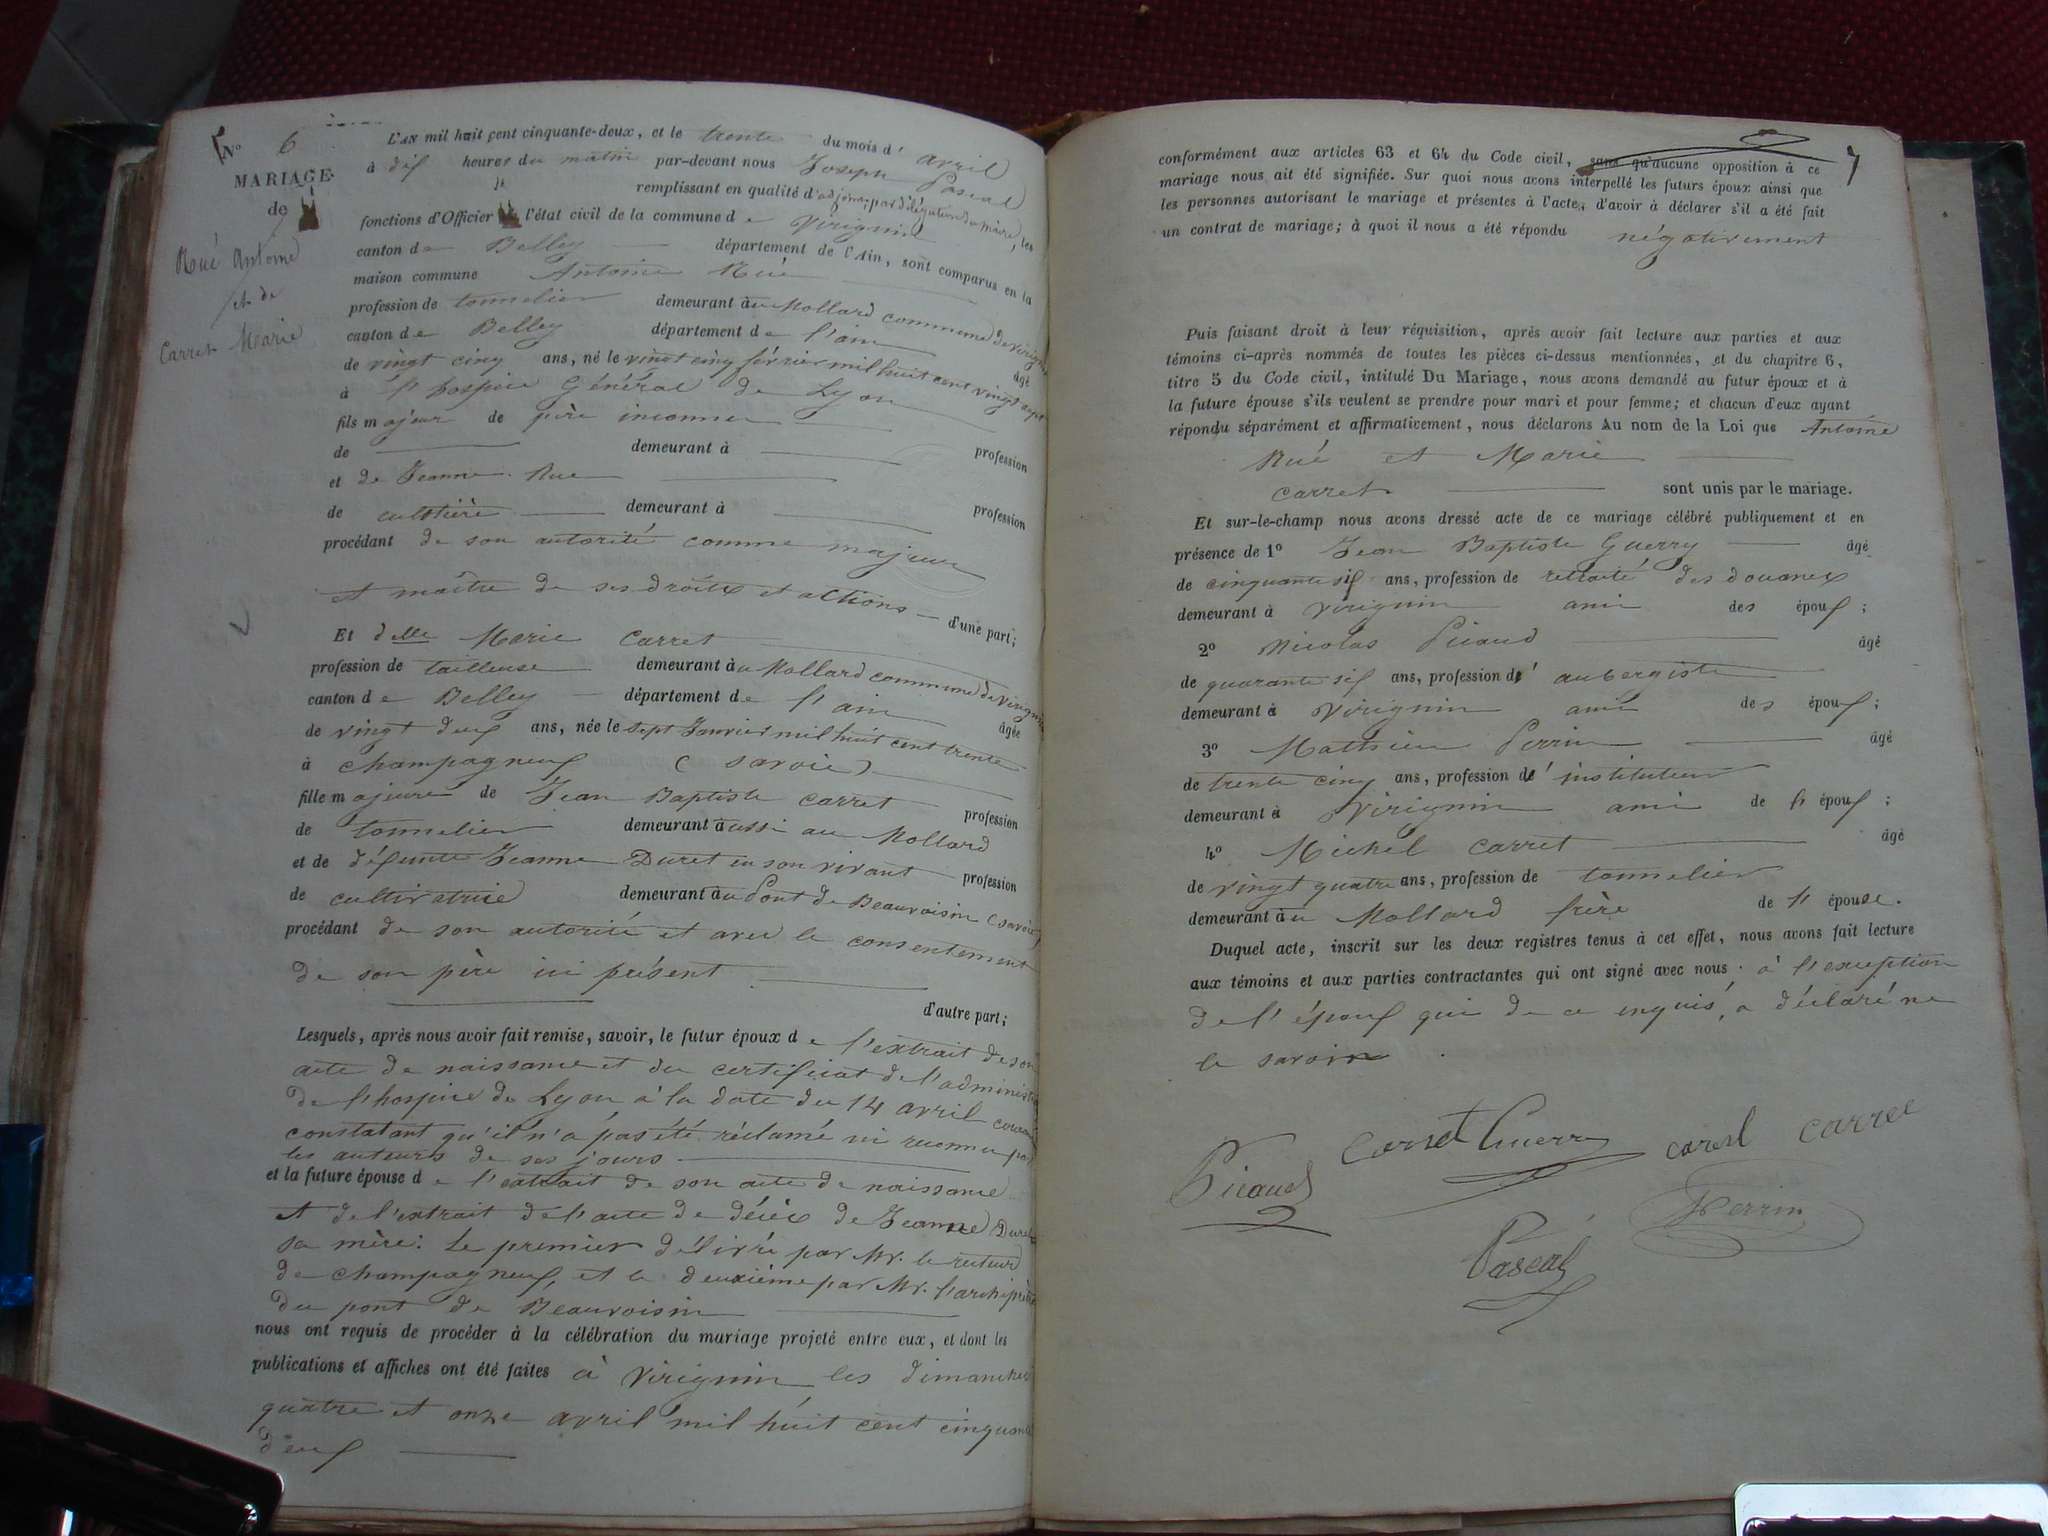 N° 6
MARIAGE
de
Rué Antoine
et de
Carret Marie
L'AN mil huit cent cinquante-deux, et le trente du mois d'avril
à dix heures du matin par-devant nous Joseph Pascal
remplissant en qualité d'adjoint, par délégation du maire, les
fonctions d'Officier de l'état civil de la commune de Virignin
canton de Belley département de l'Ain, sont comparus en la
maison commune Antoine Rué
profession de tonnelier demeurant au Mollard commune de Virignin
canton de Belley département de l'ain âgé
de vingt cinq ans, né le vingt cinq février mil huit cent vingt sept
à l'hospice Général de Lyon
fils majeur de père inconnu profession
de demeurant à
et de Jeanne Rue profession
de demeurant à
procédant de son autorité comme majeur
et maître de ses droits et actions d'une part;
Et delle Marie Carret
profession de tailleuse demeurant au Mollard commune de Virignin
canton de Belley département de l'ain âgée
de vingt deux ans, née le sept Janvier mil huit cent trente
à Champagneux (Savoie)
fille majeure de Jean Baptiste Carret profession
de tonnelier demeurant aussi au Mollard
et de défunte Jeanne Duret en son vivant profession
de cultivatrice demeurant au Pont de Beauvoisin (Savoie)
procédant de son autorité et avec le consentement
de son père ici présent
d'autre part;
Lesquels, après nous avoir fait remise, savoir, le futur époux de l'extrait de son
acte de naissance et du certificat de l'administ
de l'hospice de Lyon à la date du 14 avril courant
constatant qu'il n'a pas été réclamé ni reconnu par
les auteurs de ses jours
et la future épouse de l'extrait de son acte de naissance
et de l'extrait de l'acte de décès de Jeanne Duret
sa mère: Le premier délivré par Mr. le recteur
de Champagneux, et le deuxième par Mr. l'archiprêtre
du pont de Beauvoisin
nous ont requis de procéder à la célébration du mariage projeté entre eux, et dont les
publications et affiches ont été faites à Virignin les dimanches
quatre et onze avril mil huit cent cinquante
deux
7
conformément aux articles 63 et 64 du Code civil, sans qu'aucune opposition à ce
mariage nous ait été signifiée. Sur quoi nous avons interpellé les futurs époux ainsi que
les personnes autorisant le mariage et présentes à l'acte, d'avoir à déclarer s'il a été fait
un contrat de mariage; à quoi il nous a été répondu négativement
Puis faisant droit à leur réquisition, après avoir fait lecture aux parties et aux
témoins ci-après nommés de toutes les pièces ci-dessus mentionnées, et du chapitre 6,
titre 5 du Code civil, intitulé Du Mariage, nous avons demandé au futur époux et à
la future épouse s'ils veulent se prendre pour mari et pour femme; et chacun d'eux ayant
répondu séparément et affirmativement, nous déclarons Au nom de la Loi que Antoine
Rué et Marie
Carret sont unis par le mariage.
Et sur-le-champ nous avons dressé acte de ce mariage célébré publiquement et en
présence de 1° Jean Baptiste Guerry âgé
de cinquante six ans, profession de retraité des douanes
demeurant à Virignin ami des époux;
2° Nicolas Picaud âgé
de quarante six ans, profession d'aubergiste
demeurant à Virignin ami des époux;
3° Mathieu Perrin âgé
de trente cinq ans, profession d'instituteur
demeurant à Virignin ami de l'époux;
4° Michel Carret âgé
de vingt quatre ans, profession de tonnelier
demeurant au Mollard frère de l'épouse.
Duquel acte, inscrit sur les deux registres tenus à cet effet, nous avons fait lecture
aux témoins et aux parties contractantes qui ont signé avec nous à l'exception
de l'époux qui de ce enquis, a déclaré ne
le savoir
Guerry Carret
Picaud
Perrin
Pascal